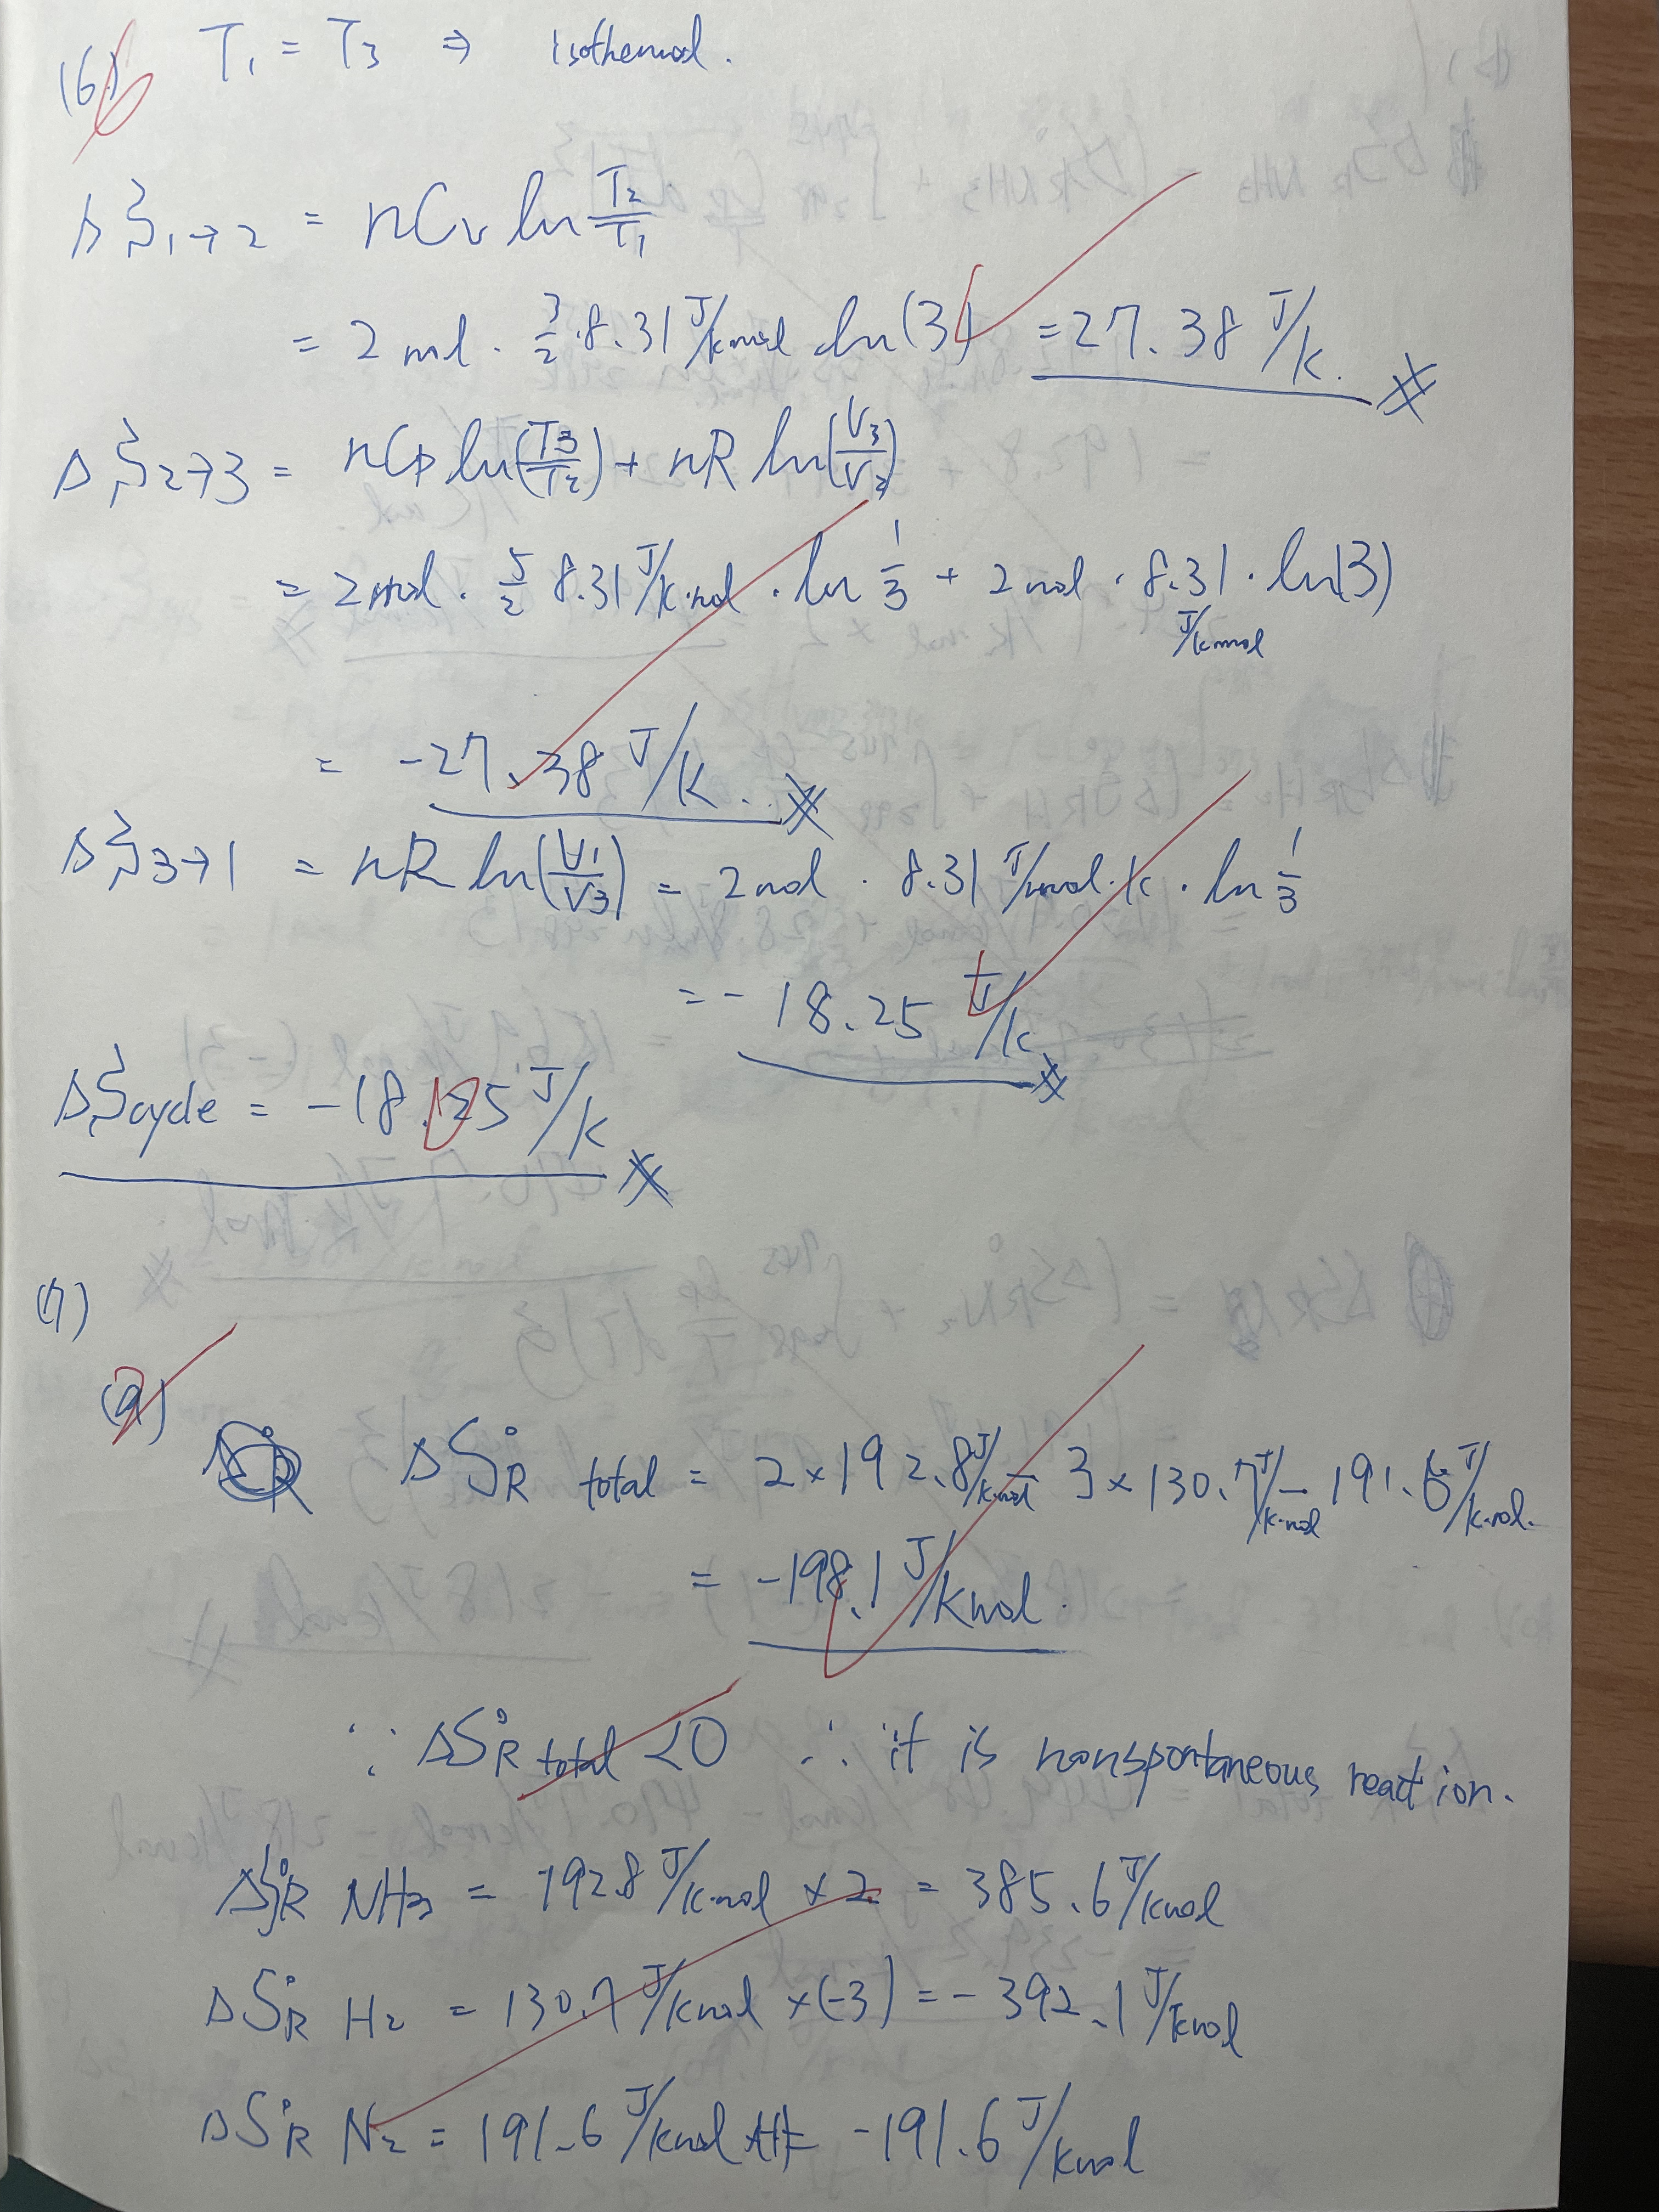 (6) T₁ = T₃ ⇒ isothermal.
ΔS₁→₂ = nCv ln T₂/T₁
= 2 mol · 3/2 · 8.31 J/k mol · ln(3) = 27.38 J/k.
ΔS₂→₃ = nCp ln(T₃/T₂) + nR ln(V₃/V₂)
= 2 mol · 5/2 8.31 J/k·mol · ln 1/3 + 2 mol · 8.31 J/k mol · ln(3)
= -27.38 J/k.
ΔS₃→₁ = nR ln(V₁/V₃) = 2 mol · 8.31 J/mol·k · ln 1/3
= -18.25 J/k
ΔS cycle = -18.25 J/k
0
(7)
(a)
ΔS°R total = 2×192.8 J/k·mol - 3×130.7 J/k·mol - 191.6 J/k·mol.
= -198.1 J/k mol.
∵ ΔS°R total <0 ∴ it is nonspontaneous reaction.
ΔS°R NH₃ = 192.8 J/k·mol × 2 = 385.6 J/k mol
ΔS°R H₂ = 130.7 J/k mol ×(-3) = -392.1 J/k mol
ΔS°R N₂ = 191.6 J/k mol = -191.6 J/k mol